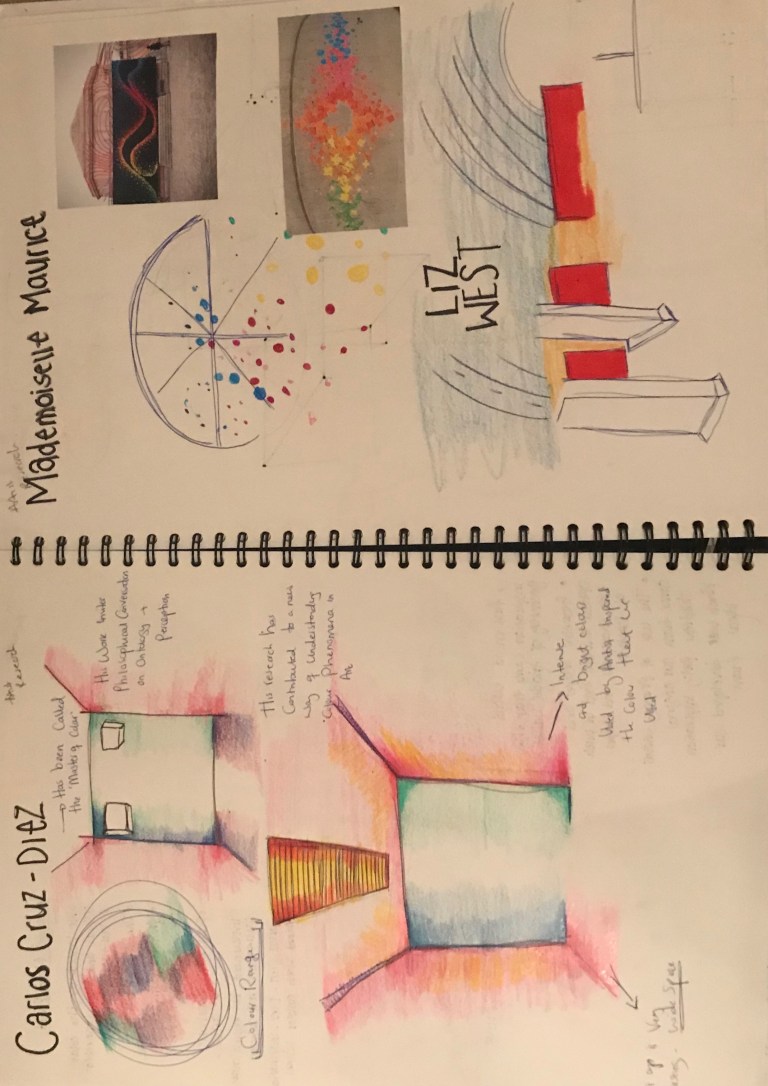 Carlos Cruz-Diez
→ Has been Called
the "Master of Color"
His Work invites
Philosophical Conversation
on Ontology +
Perception
"Colour Range"
His research has
Contributed to a new
Way of Understanding
'Colour Phenomena in
Art
→ Intense
and bright colours
Used by Artist Inspired
the Colour that I've
Used
Very
Wide Space
Artist
Research
Mademoiselle Maurice
LIZ
WEST